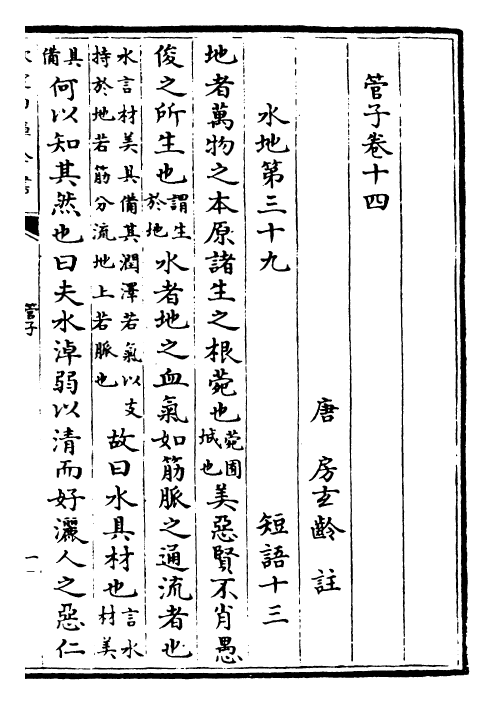 管子卷十四
唐 房玄齡 註
水地第三十九 短語十三
地者萬物之本原諸生之根菀也菀囿城也美惡賢不肖愚
俊之所生也謂生於地水者地之血氣如筋脈之通流者也
水言材美具備其潤澤若氣以支持於地若筋分流地上若脈也故曰水具材也言水材美
具備何以知其然也曰夫水淖弱以清而好灑人之惡仁
管子
一